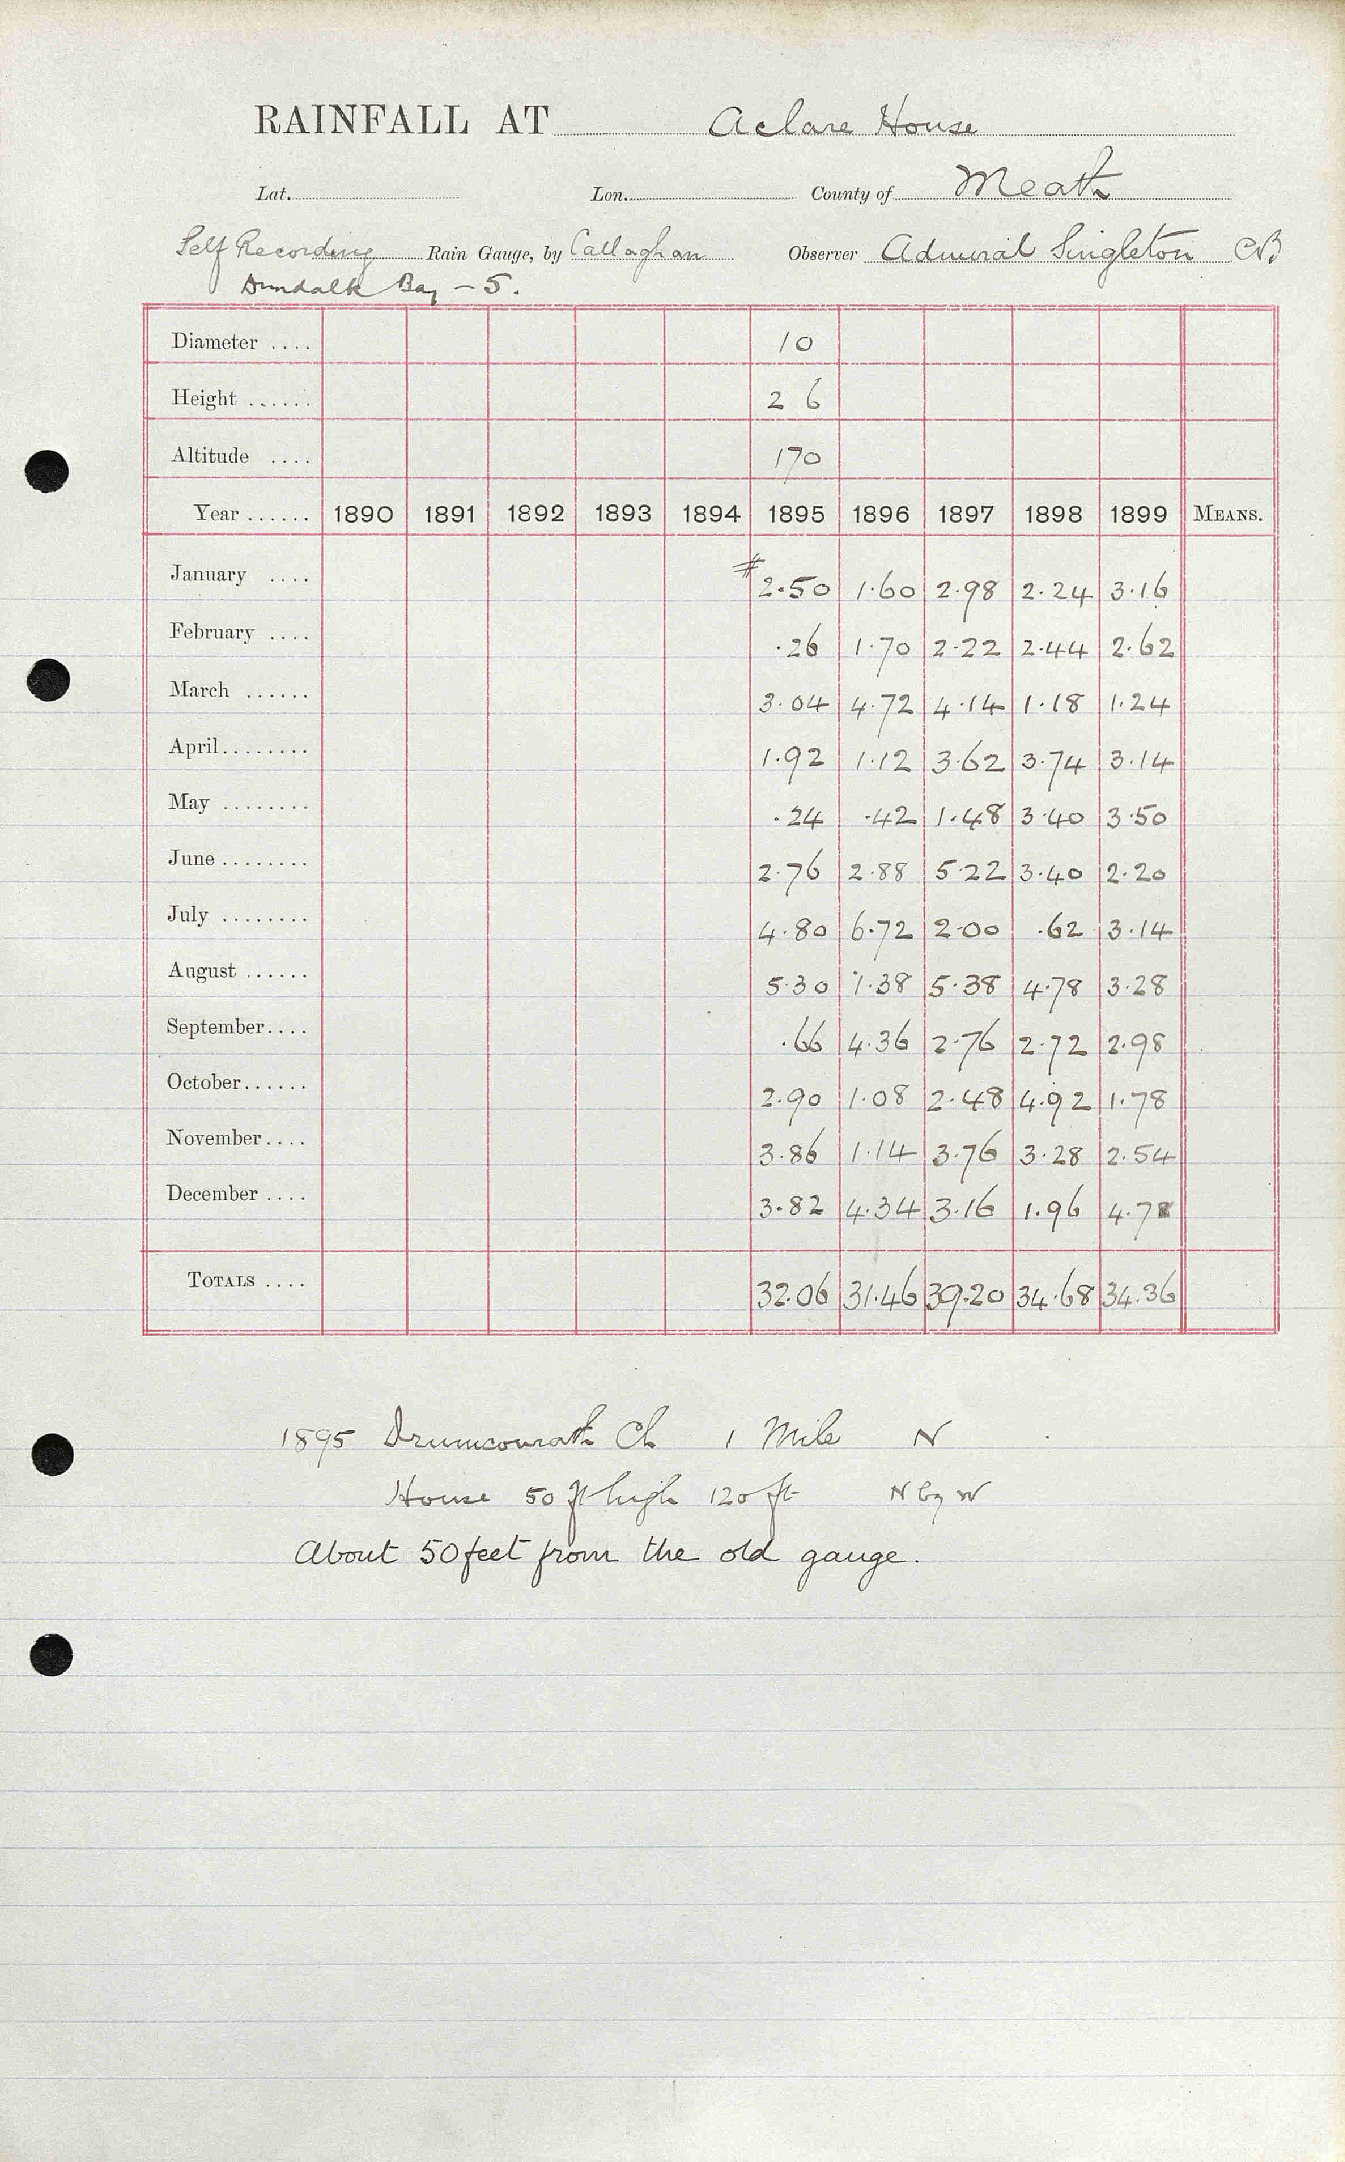 RAINFALL AT Aclare House
Lat. Lon. County of Meath
Self Recording Rain Gauge, by Callaghan Observer Admiral Singleton CB
Dundalk Bay – 5.
Diameter .... 10
Height ...... 2 6
Altitude .... 170
Year ...... 1890 1891 1892 1893 1894 1895 1896 1897 1898 1899 MEANS.
January .... # 2.50 1.60 2.98 2.24 3.16
February .... .26 1.70 2.22 2.44 2.62
March ...... 3.04 4.72 4.14 1.18 1.24
April ........ 1.92 1.12 3.62 3.74 3.14
May ........ .24 .42 1.48 3.40 3.50
June ........ 2.76 2.88 5.22 3.40 2.20
July ........ 4.80 6.72 2.00 .62 3.14
August ...... 5.30 1.38 5.38 4.78 3.28
September.... .66 4.36 2.76 2.72 2.98
October...... 2.90 1.08 2.48 4.92 1.78
November.... 3.86 1.14 3.76 3.28 2.54
December .... 3.82 4.34 3.16 1.96 4.78
TOTALS .... 32.06 31.46 39.20 34.68 34.36
1895 Drumconrath Ch 1 Mile N
House 50 ft high 120 ft N by W
About 50 feet from the old gauge.